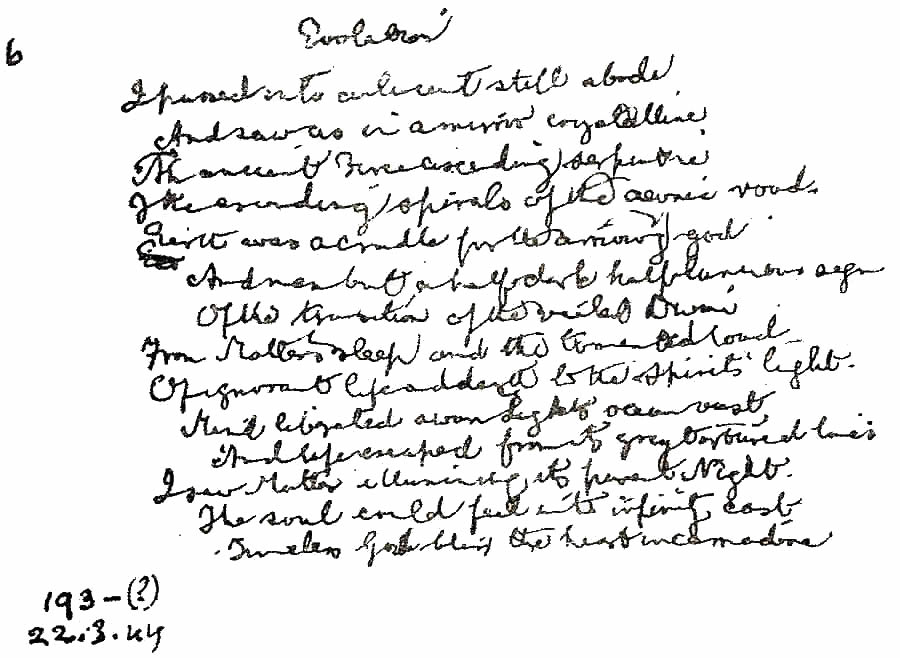 6
Evolution
I passed into a lucent still abode
And saw as in a mirror crystalline
An ancient Force ascending serpentine
The spirals of the aeonic road.
Earth was a cradle for the arriving god
And man but a half-dark half-luminous sign
Of the transition of the veiled Divine
From Matter's sleep and the tormented load
Of ignorant life and death to the Spirit's light.
Mind liberated swam Light's ocean vast
And life escaped from its grey tortured line
I saw Matter illumining its parent Night.
The soul could feel into infinity cast
Timeless God-bliss the heart incarnadine
193-(?)
22.3.44